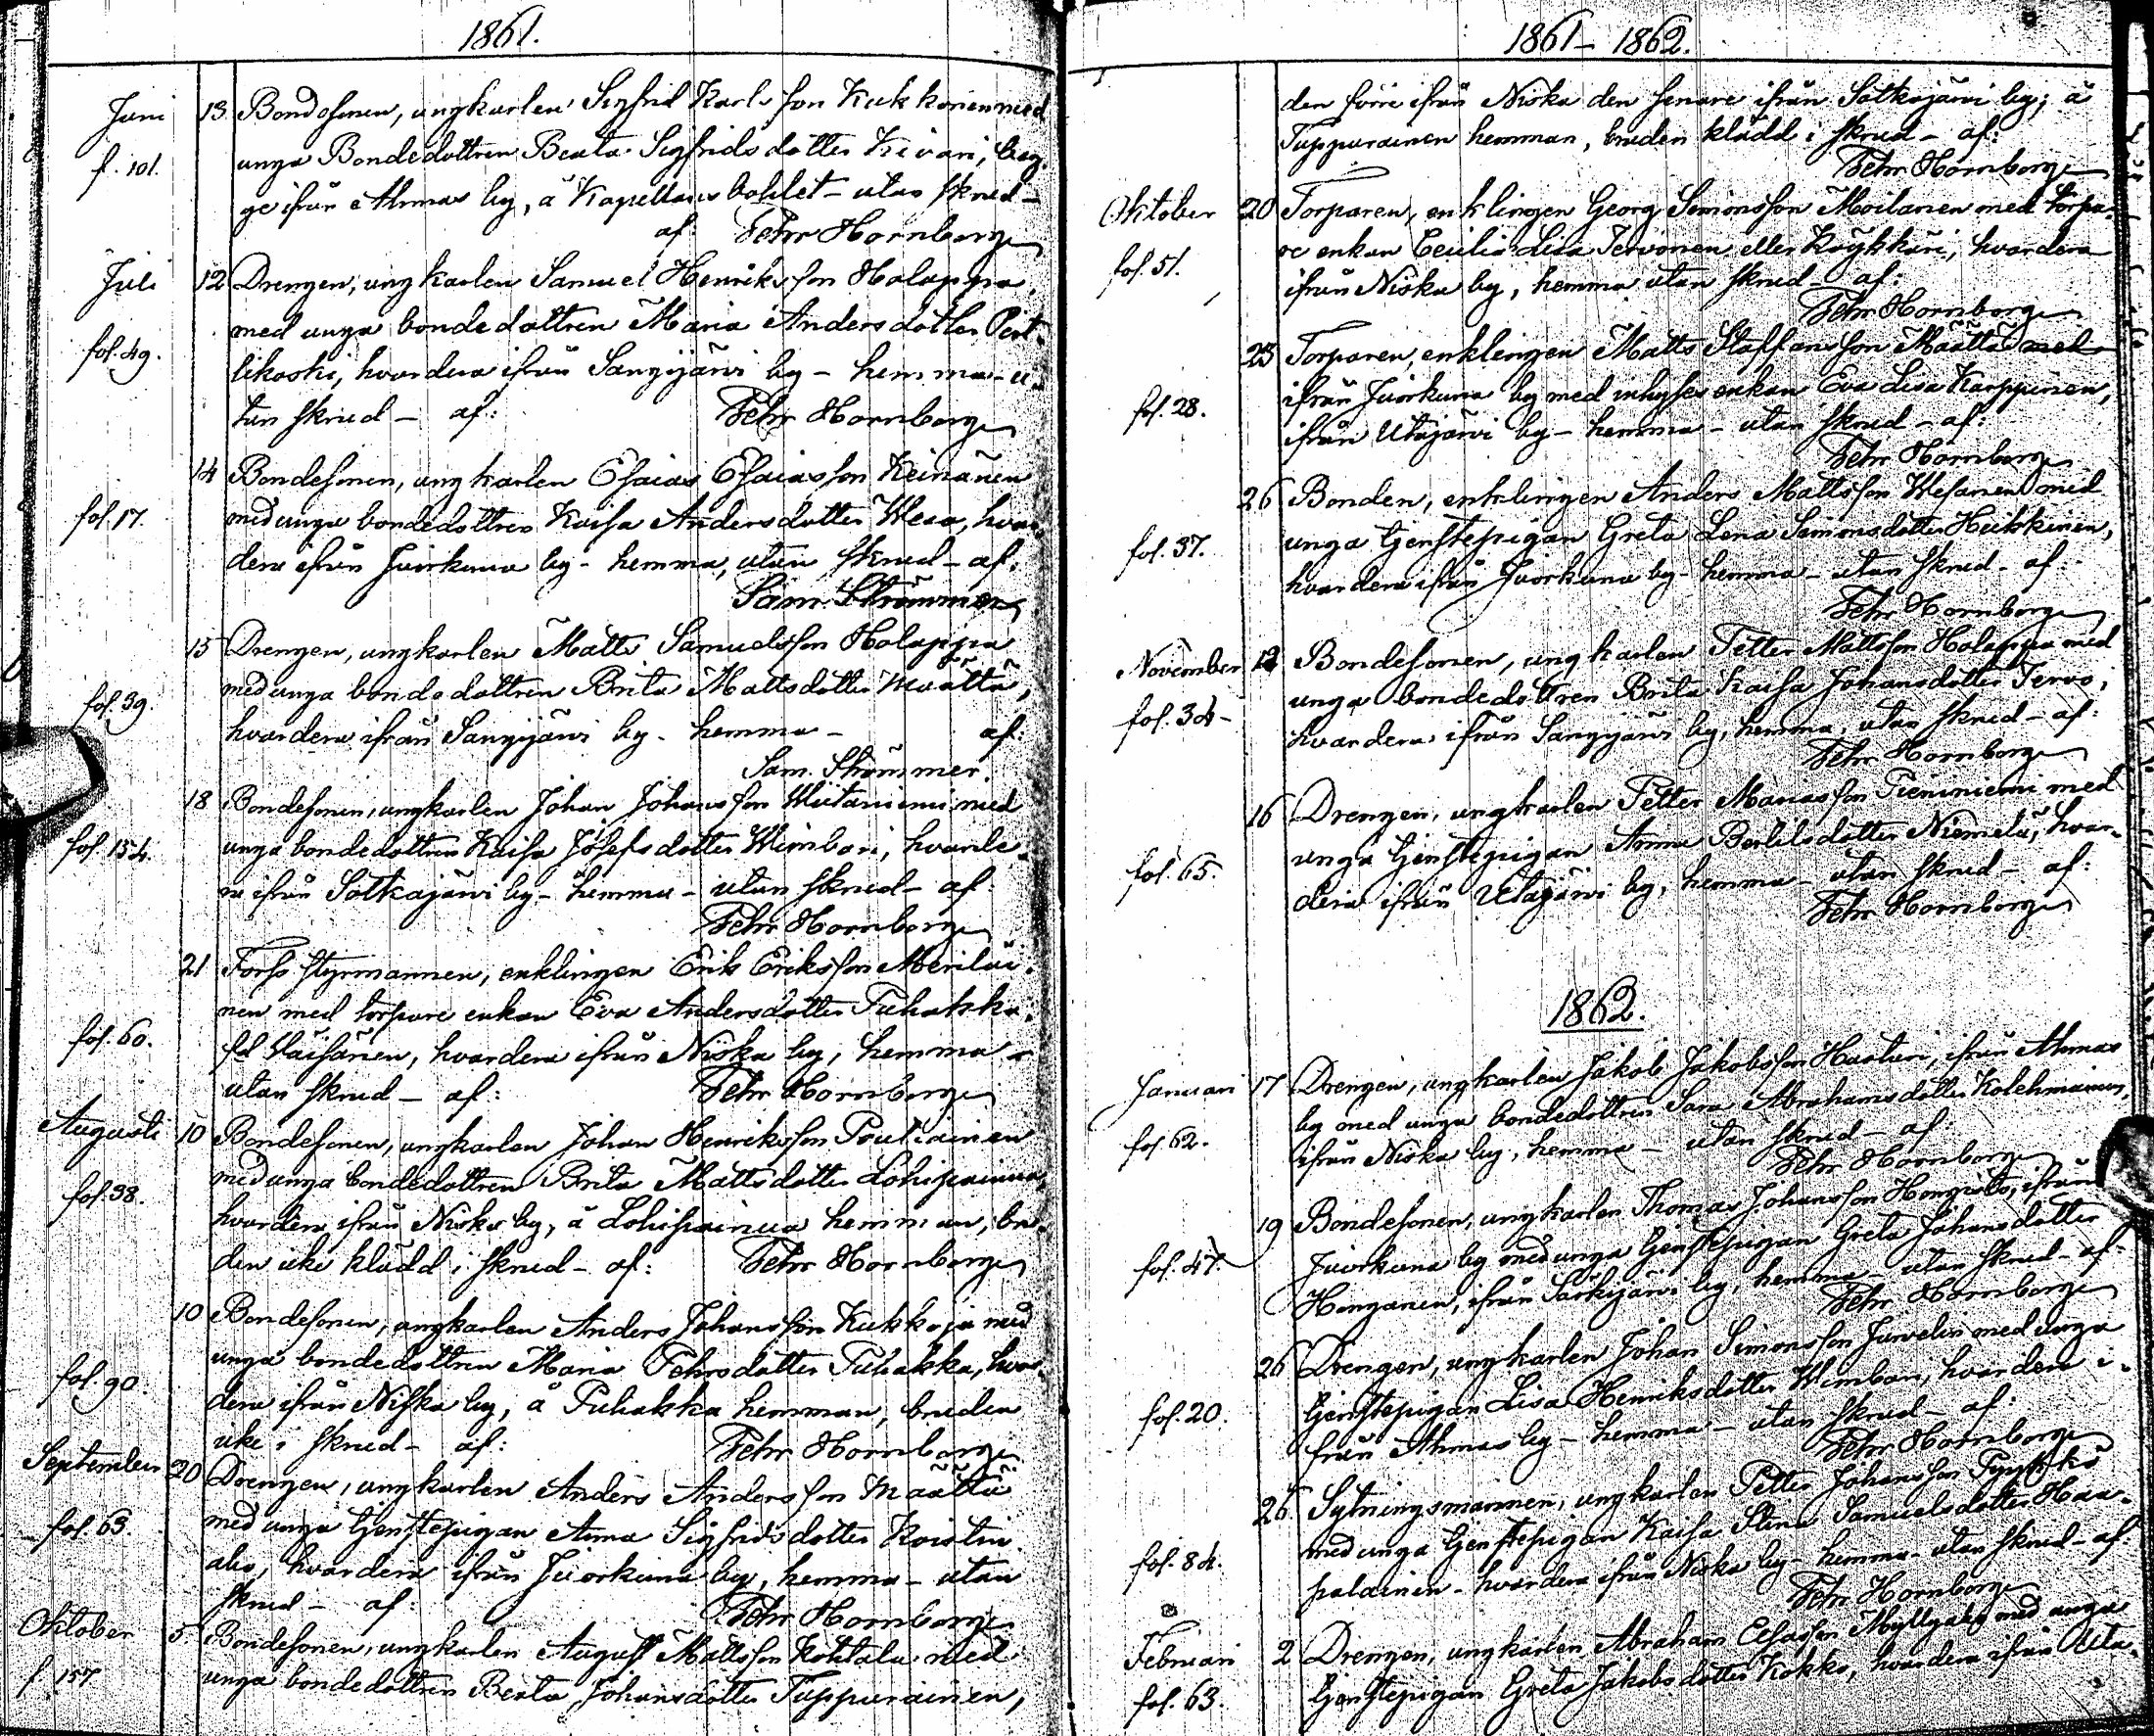 1861.
Juni 13. Bondesonen, ungkarlen Sigfrid Karlsson Kukkonen med
f. 101. unga Bondedottren Beata Sigfridsdotter Kivari, beg-
ge ifrån Ahmas by, å Kapellans bohlet - utan skrud -
af: Fehr Hornborg
Juli 12 Drengen, ungkarlen Samuel Henriksson Holappa,
med unga bondedottren Maria Andersdotter Pert-
fol. 49. tikoski, hvardera ifrån Sangijärvi by - hemma - u-
tan skrud - af: Fehr Hornborg
14 Bondesonen, ungkarlen Esaias Esaiasson Keinänen
fol. 17. med unga bondedottren Kaisa Andersdotter Wesa, hvar-
dera ifrån Juorkuna by - hemma, utan skrud - af.
Sam. Strömmer
15 Drengen, ungkarlen Matts Samuelsson Holappa
med unga bondedottren Brita Mattsdotter Määttä,
fol. 39. hvardera ifrån Sangijärvi by - hemma - af:
Sam. Strömmer.
18 Bondesonen, ungkarlen Johan Johansson Wiitaniemi med
fol. 154. unga bondedottren Kaisa Josefsdotter Wimbari, hvarde-
ra ifrån Sotkajärvi by - hemma - utan skrud - af
Fehr Hornborg
21 Forss styrmannen, enklingen Erik Eriksson Meriläi-
nen med torpare enkan Eva Andersdotter Puhakka,
fol. 60. fd Väisänen, hvardera ifrån Niska by, hemma -
utan skrud - af: Fehr Hornborg
Augusti 10 Bondesonen, ungkarlen Johan Henriksson Pouliainen
fol. 38. med unga bondedottren Brita Mattsdotter Lohipainua,
hvardera ifrån Niska by, å Lohipainua hemman, bru-
den icke klädd i skrud - af: Fehr Hornborg
10 Bondesonen, ungkarlen Anders Johansson Kukkoja med
fol. 90. unga bondedottren Maria Fehrsdotter Puhakka, hvar-
dera ifrån Niska by, å Puhakka hemman, bruden
icke i skrud - af: Fehr Hornborg
September 20 Drengen, ungkarlen Anders Andersson Määttä
fol. 63. med unga tjenstepigan Anna Sigfridsdotter Koistin-
aho, hvardera ifrån Juorkuna by, hemma - utan
skrud - af: Fehr Hornborg
Oktober 5. Bondesonen, ungkarlen August Mattsson Kohtala med
f. 157 unga bondedottren Beata Johansdotter Tuppurainen,
1861 - 1862.
den förre ifrån Niska den senare ifrån Sotkajärvi by; å
Tuppurainen hemman, bruden klädd i skrud - af:
Fehr Hornborg
Oktober 20 Torparen, enklingen Georg Simonsson Moilanen med torpa-
fol. 51. re enkan Cecilia Lisa Tervonen eller Köykkäri, hvardera
ifrån Niska by, hemma utan skrud - af:
Fehr Hornborg
25 Torparen, enklingen Matts Staffansson Määttä med
fol. 28. ifrån Juorkuna by med inhyses enkan Eva Lisa Karppinen,
ifrån Utajärvi by - hemma - utan skrud - af:
Fehr Hornborg
26 Bonden, enklingen Anders Mattsson Wesanen med
fol. 37. unga tjenstepigan Greta Lena Simonsdotter Heikkinen,
hvardera ifrån Juorkuna by - hemma - utan skrud - af
Fehr Hornborg
November 12 Bondesonen, ungkarlen Petter Mattsson Holappa med
fol. 34 - unga bondedottren Brita Kaisa Johansdotter Tervo,
hvardera ifrån Sangijärvi by, hemma, utan skrud - af:
Fehr Hornborg
16 Drengen, ungkarlen Petter Mariasson Pieniniemi med
fol. 65. unga tjenstepigan Anna Bertilsdotter Niemelä, hvar-
dera ifrån Utajärvi by, hemma - utan skrud - af:
Fehr Hornborg
1862.
Januari 17 Drengen, ungkarlen Jakob Jakobsson Hasturi, ifrån Ahmas
fol. 62. by med unga bondedottren Sara Abrahamsdotter Kolehmainen,
ifrån Niska by, hemma - utan skrud - af
Fehr Hornborg
19 Bondesonen, ungkarlen Thomas Johansson Hongisto, ifrån
fol. 47. Juorkuna by med unga tjenstepigan Greta Johansdotter
Honganen, ifrån Särkijärvi by, hemma utan skrud - af:
Fehr Hornborg
26 Drengen, ungkarlen Johan Simonsson Juvelin med unga
fol. 20. tjenstepigan Lisa Henriksdotter Wimbari, hvardera i-
från Ahmas by - hemma - utan skrud - af:
Fehr Hornborg
26 Sytningsmannen, ungkarlen Petter Johansson
fol. 84. med unga tjenstepigan Kaisa Stina Samuelsdotter Haa-
palainen - hvardera ifrån Niska by - hemma - utan skrud - af:
Fehr Hornborg
Februari 2 Drengen, ungkarlen Abraham Esasson Myllyaho med unga
fol. 63. tjenstepigan Greta Jakobsdotter Kokko, hvardera ifrån Uta-